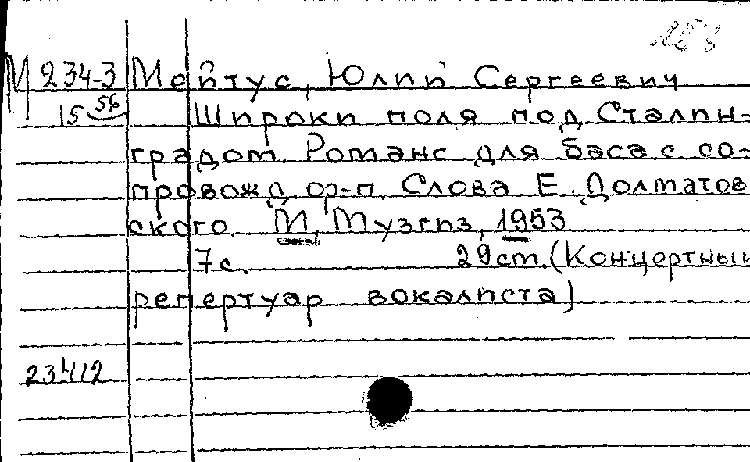 М 234-3 Мейтус, Юлий Сергеевич
15 56 Широки поля под Сталин-
градом. Романс для баса с со-
провожд. ф-п. Слова Е. Долматов
ского. М., Музгиз, 1953
7 с. 29 cm. (Концертный
репертуар вокалиста)
23412